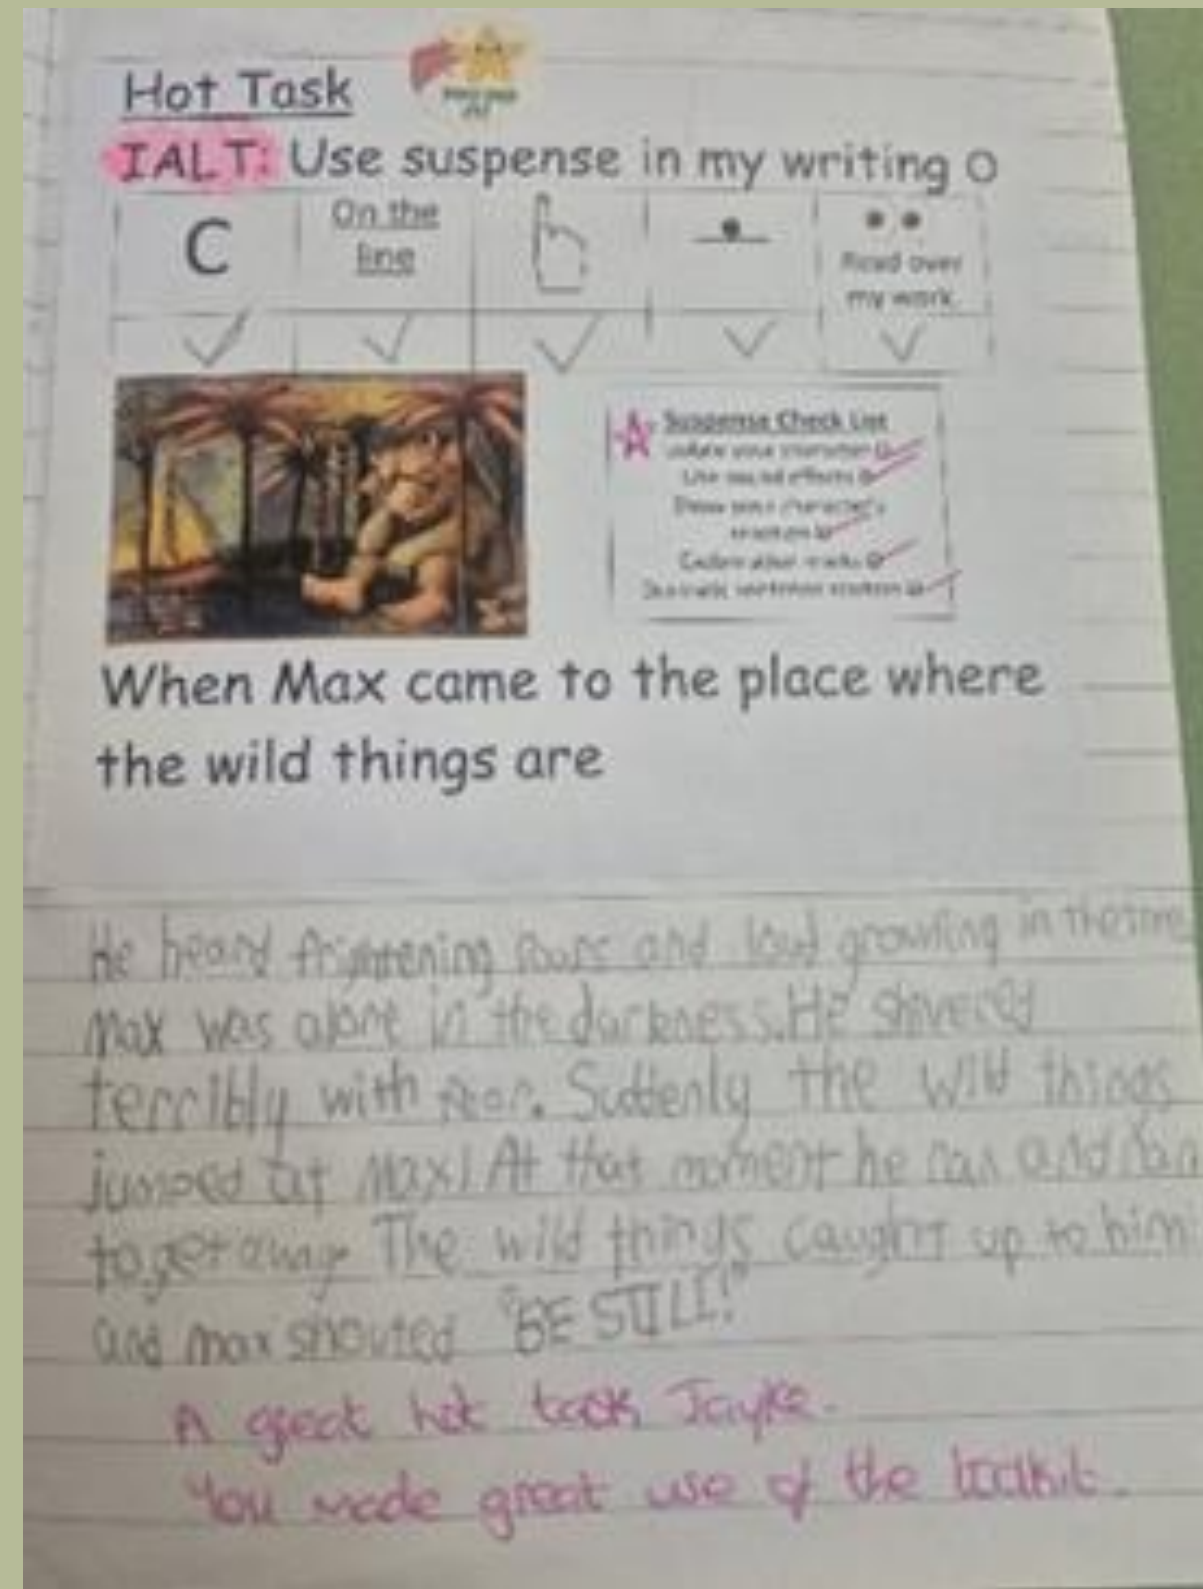 Hot Task
IALT: Use suspense in my writing O
C
On the
line
Read over
my work
Suspense Check List
your character
Use sound effects
Show your character's
reaction
Dramatic sentence starters
When Max came to the place where
the wild things are
He heard frightening roars and loud growling in the
Max was alone in the darkness. He shivered
terribly with fear. Suddenly the wild things
jumped at Max! At that moment he ran and ran
to get away The wild things caught up to him
and max shouted "BE STILL!"
A great hot task Jayke.
You made great use of the toolkit.